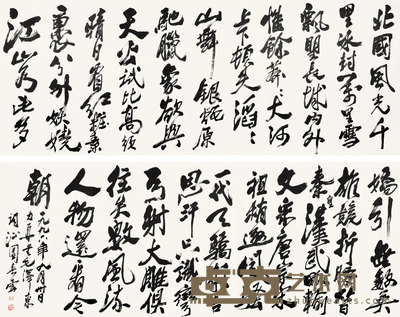 北國風光千
里冰封萬里雪
飄望長城内外
惟餘莽莽大河
上下頓失滔滔
山舞銀蛇原
馳臘象欲與
天公試比高須
晴日看紅粧素
裹分外妖嬈
江山如此多
嬌引無數英
雄競折腰惜
秦皇漢武略輸
文采唐宗宋
祖稍遜風騷
一代天驕成吉
思汗只識彎
弓射大雕俱
往矣數風流
人物還看今
朝
書毛澤東
詞沁園春雪
艺术网